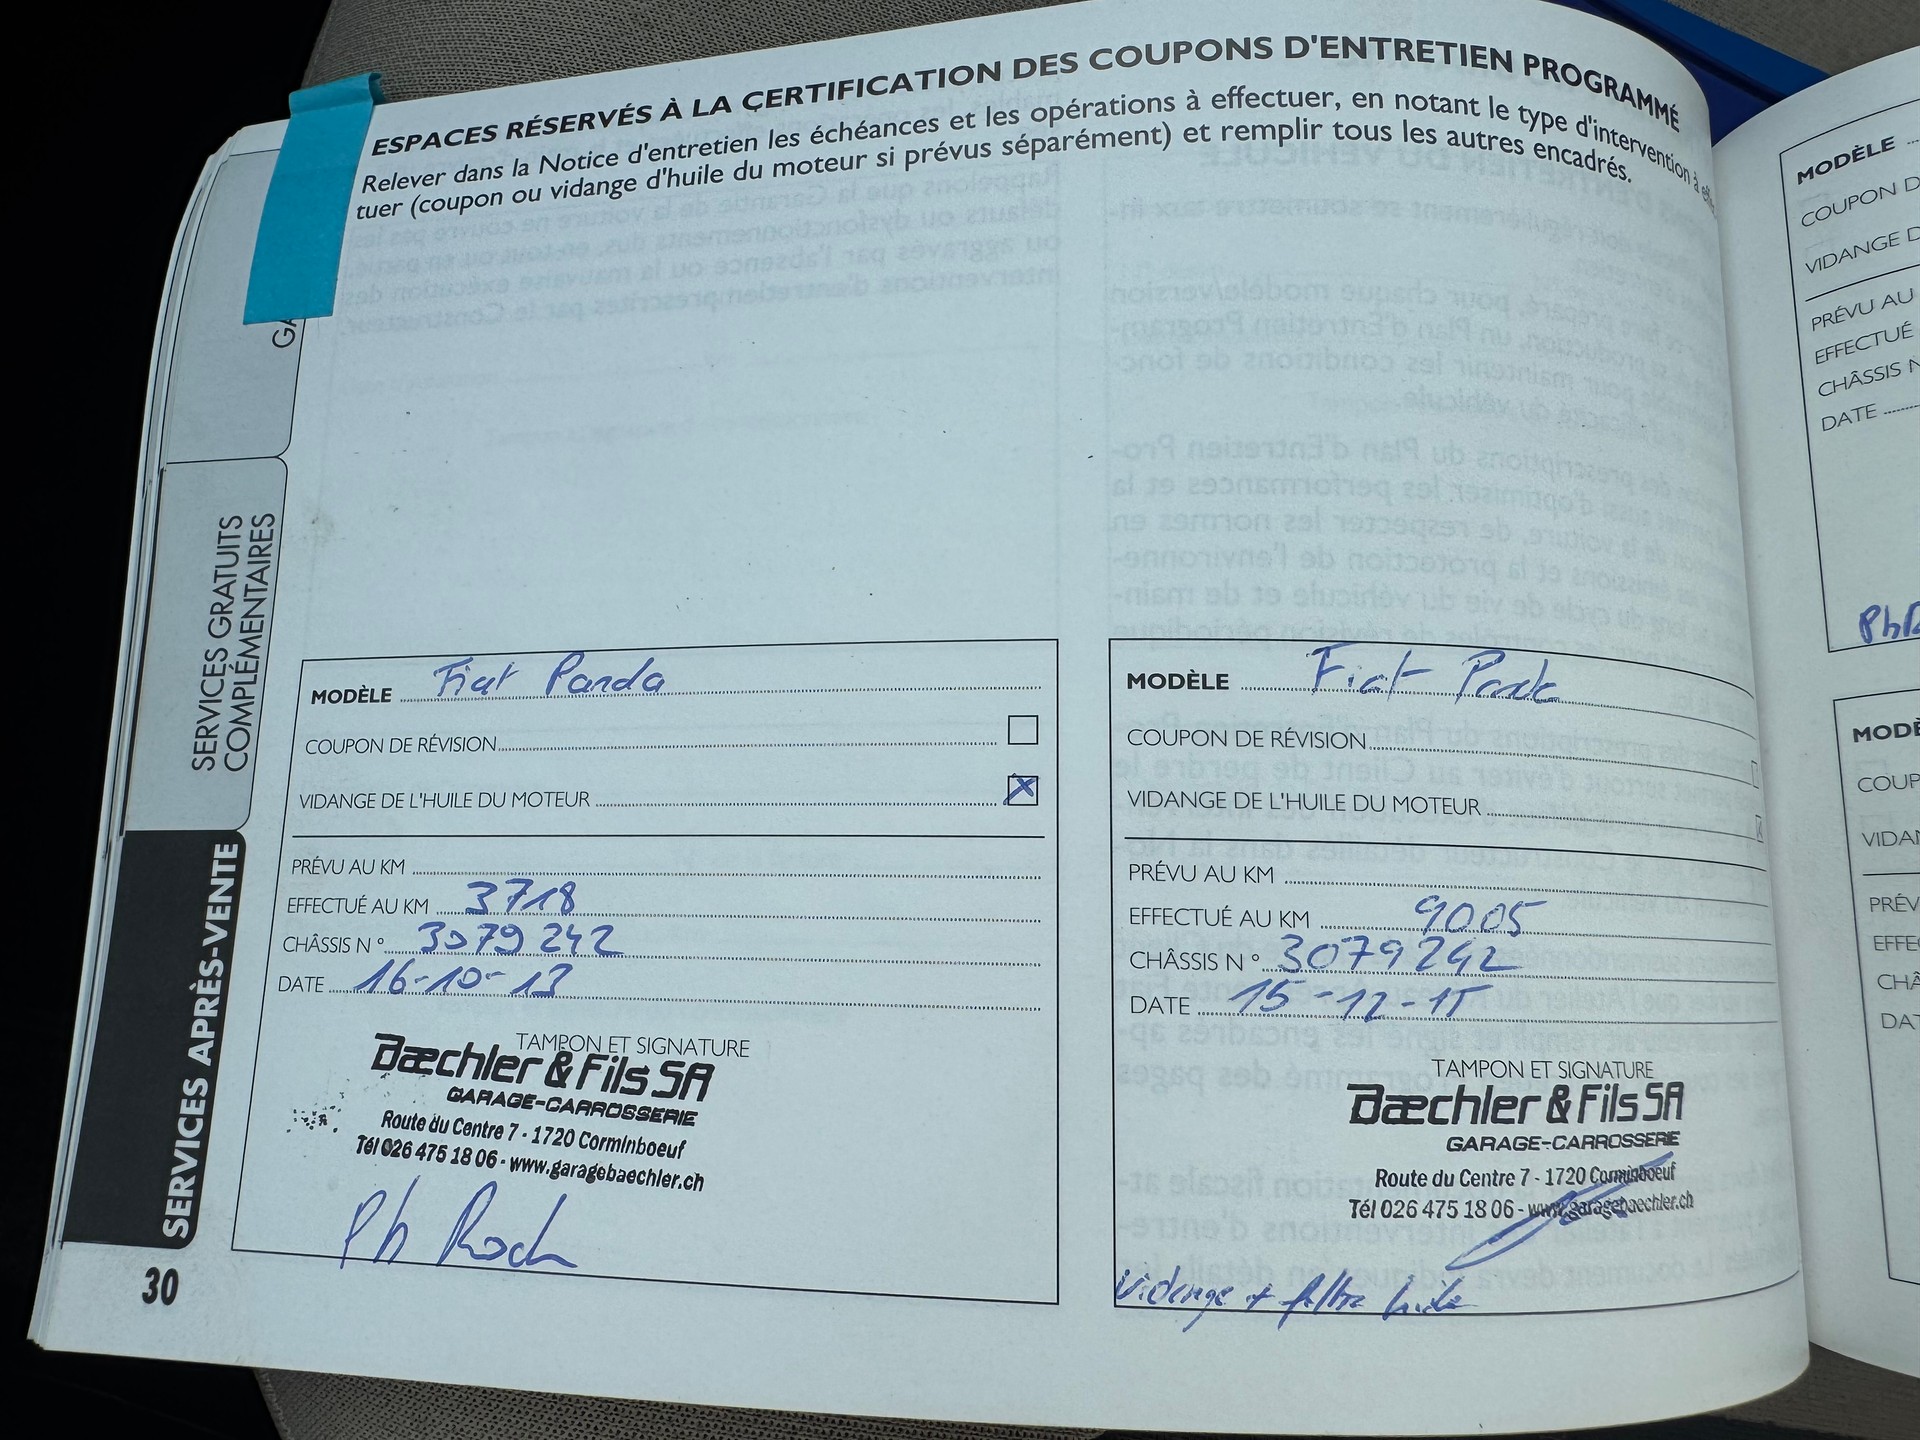 ESPACES RÉSERVÉS À LA CERTIFICATION DES COUPONS D'ENTRETIEN PROGRAMMÉ
Relever dans la Notice d'entretien les échéances et les opérations à effectuer, en notant le type d'intervention à effec-
tuer (coupon ou vidange d'huile du moteur si prévus séparément) et remplir tous les autres encadrés.
GA
SERVICES GRATUITS
COMPLÉMENTAIRES
SERVICES APRÈS-VENTE
30
MODÈLE Fiat Panda
COUPON DE RÉVISION
VIDANGE DE L'HUILE DU MOTEUR X
PRÉVU AU KM
EFFECTUÉ AU KM 3718
CHÂSSIS N° 3079242
DATE 16-10-13
TAMPON ET SIGNATURE
Bæchler & Fils SA
GARAGE-CARROSSERIE
Route du Centre 7 - 1720 Corminboeuf
Tél 026 475 18 06 - www.garagebaechler.ch
Ph Roch
MODÈLE Fiat Panda
COUPON DE RÉVISION
VIDANGE DE L'HUILE DU MOTEUR
PRÉVU AU KM
EFFECTUÉ AU KM 9005
CHÂSSIS N° 3079242
DATE 15-12-15
TAMPON ET SIGNATURE
Bæchler & Fils SA
GARAGE-CARROSSERIE
Route du Centre 7 - 1720 Corminboeuf
Tél 026 475 18 06 - www.garagebaechler.ch
Vidange + filtre huile
MODÈLE
COUPON D
VIDANGE D
PRÉVU AU
EFFECTUÉ
CHÂSSIS N
DATE
MODÈ
COUP
VIDAN
PRÉV
EFFE
CHÂ
DAT